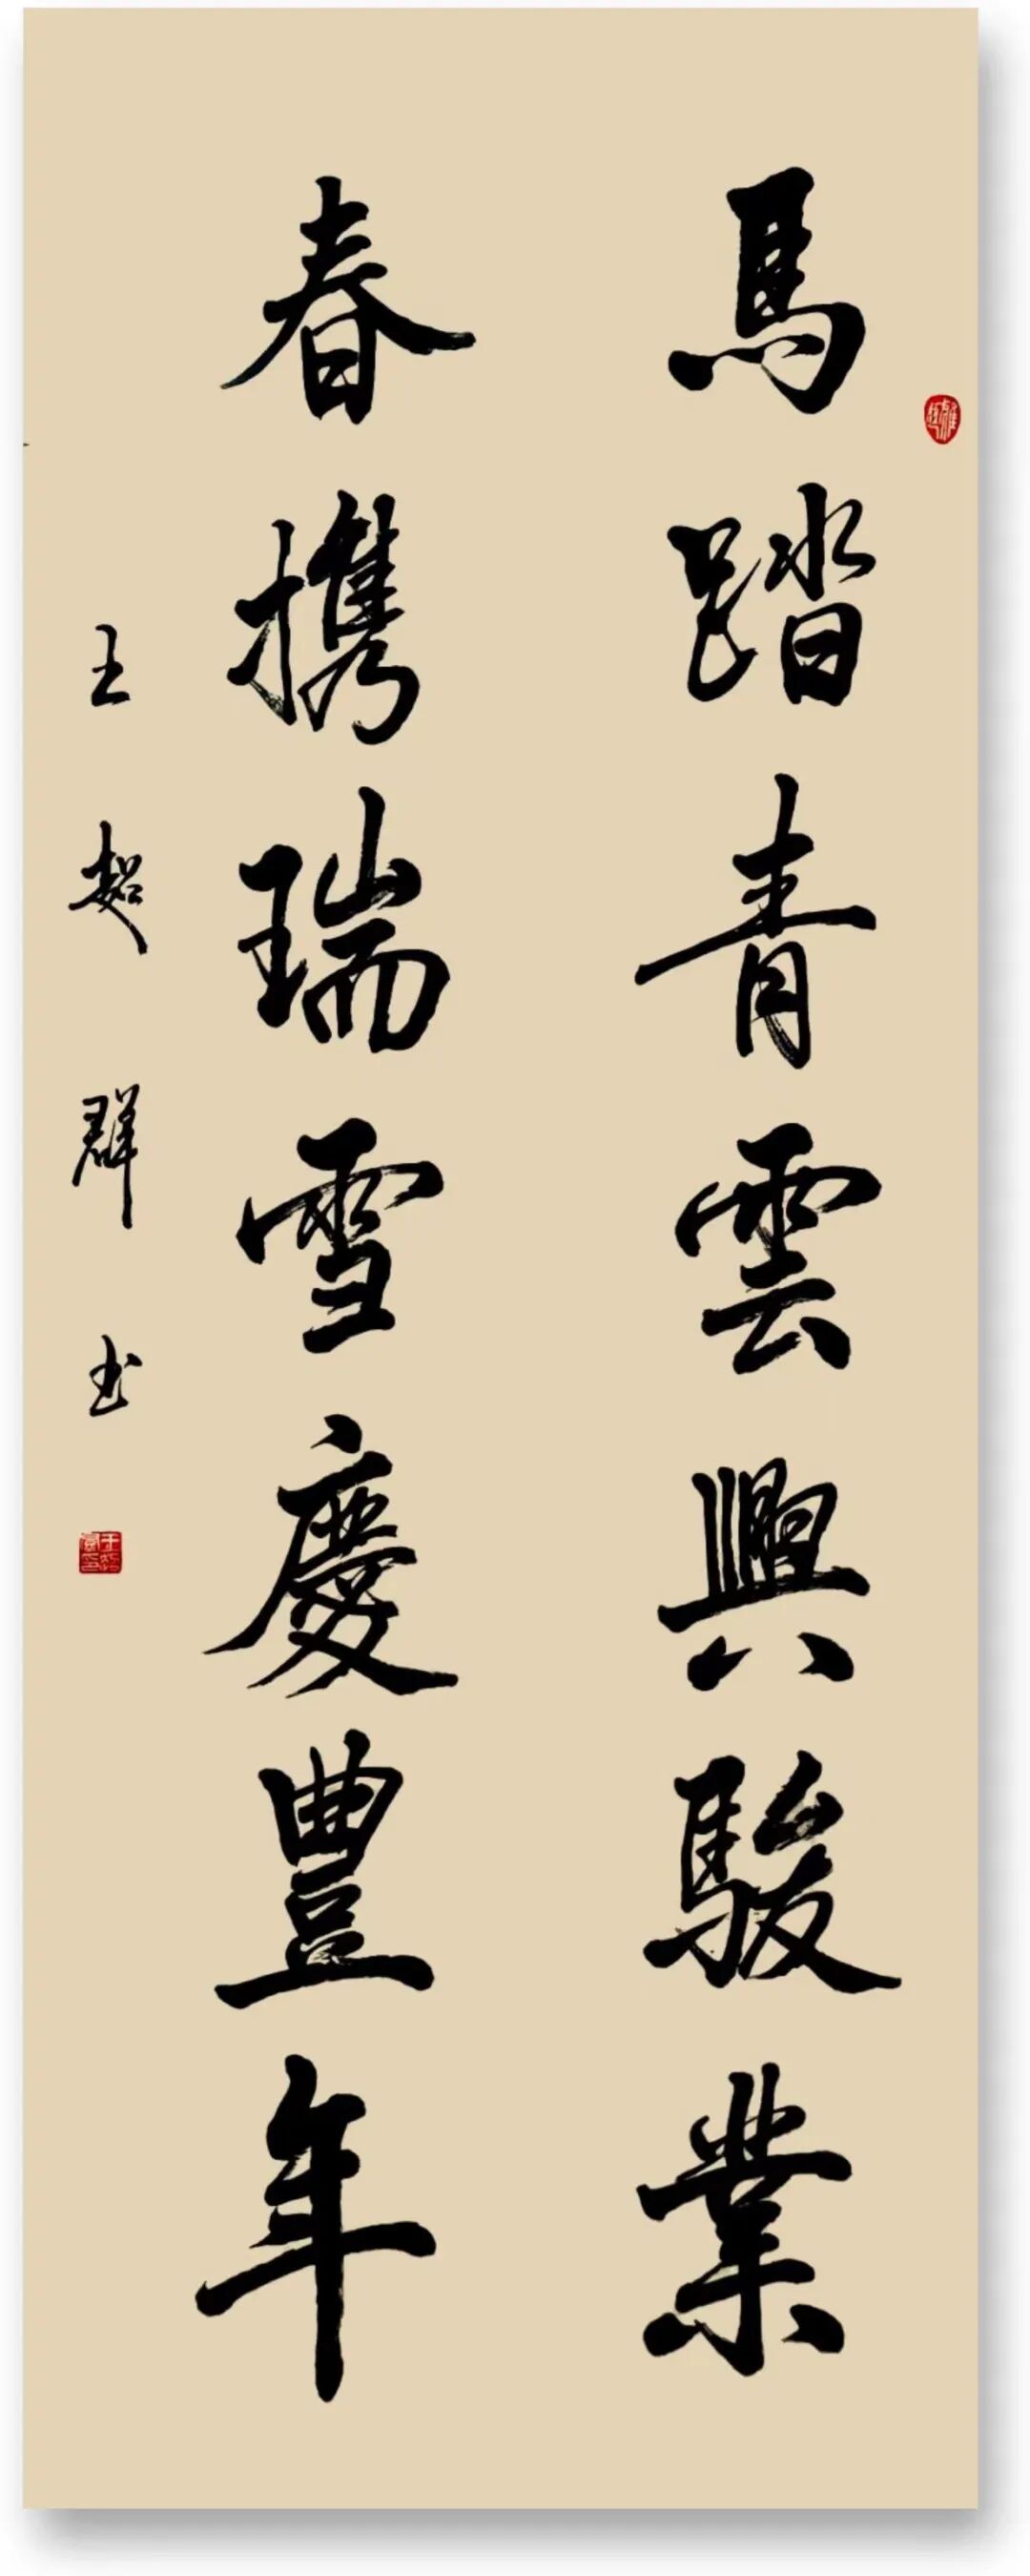 馬踏青雲興駿業
春携瑞雪慶豊年
王超群书